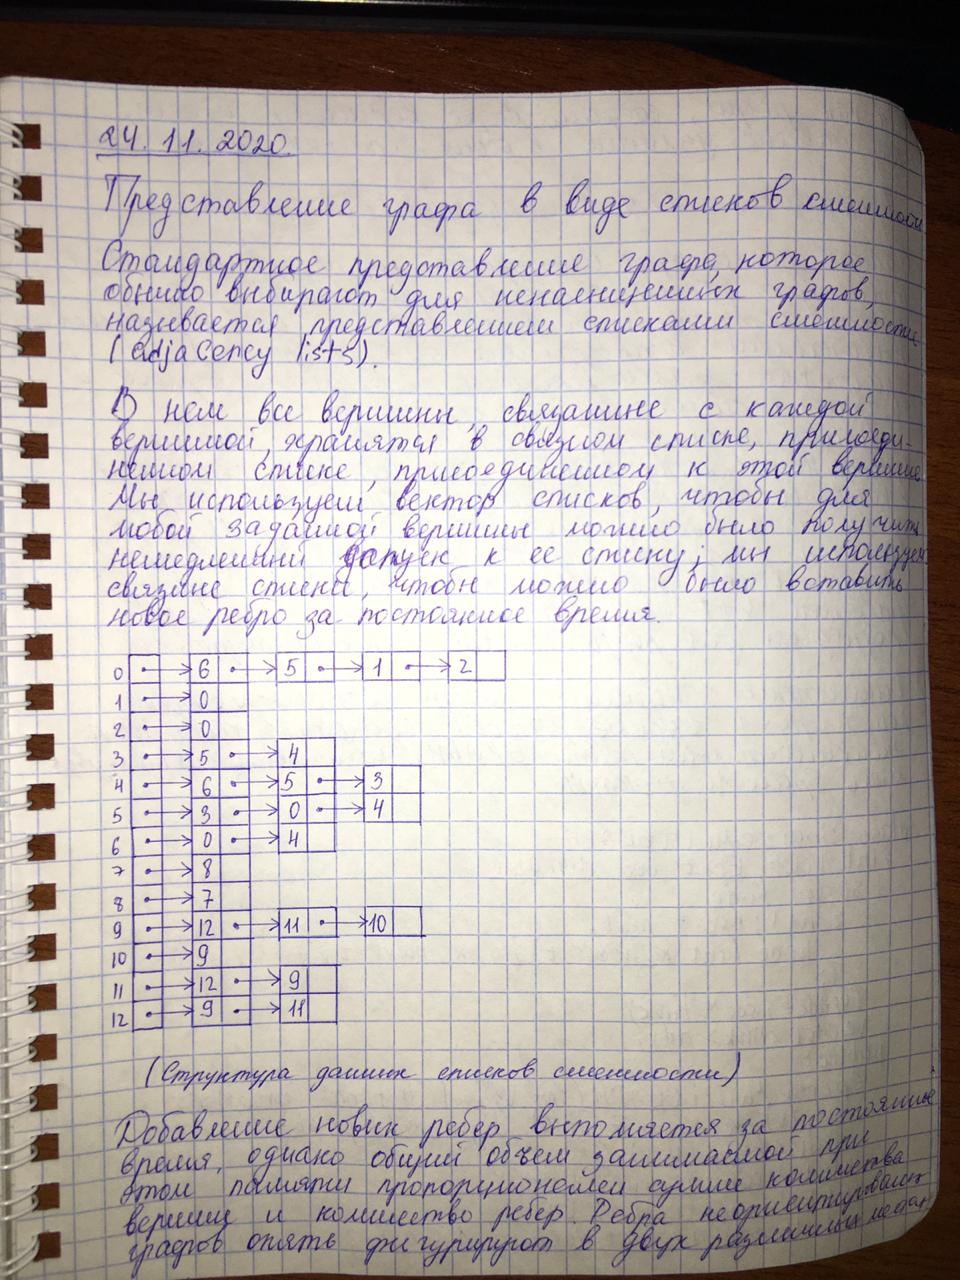 24.11.2020.
Представление графа в виде списков смежности
Стандартное представление графа, которое
обычно выбирают для ненасыщенных графов,
называется представлением списками смежности
(adjacency lists).
В нем все вершины, связанные с каждой
вершиной, хранятся в связном списке, присоеди-
ненном списке, присоединенном к этой вершине.
Мы используем вектор списков, чтобы для
любой заданной вершины можно было получить
немедленный допуск к ее списку; мы используем
связные списки, чтобы можно было вставить
новое ребро за постоянное время.
0 6 5 1 2
1 0
2 0
3 5 4
4 6 5 3
5 3 0 4
6 0 4
7 8
8 7
9 12 11 10
10 9
11 12 9
12 9 11
(Структура данных списков смежности)
Добавление новых ребер выполняется за постоянное
время, однако общий объем занимаемой при
этом памяти пропорционален сумме количества
вершин и количество ребер. Ребра неориентированных
графов опять фигурируют в двух различных